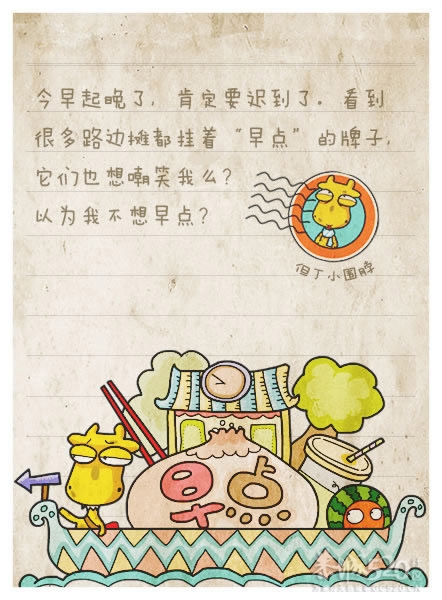 今早起晚了，肯定要迟到了。看到
很多路边摊都挂着“早点”的牌子，
它们也想嘲笑我么？
以为我不想早点？
但丁小围脖
早点